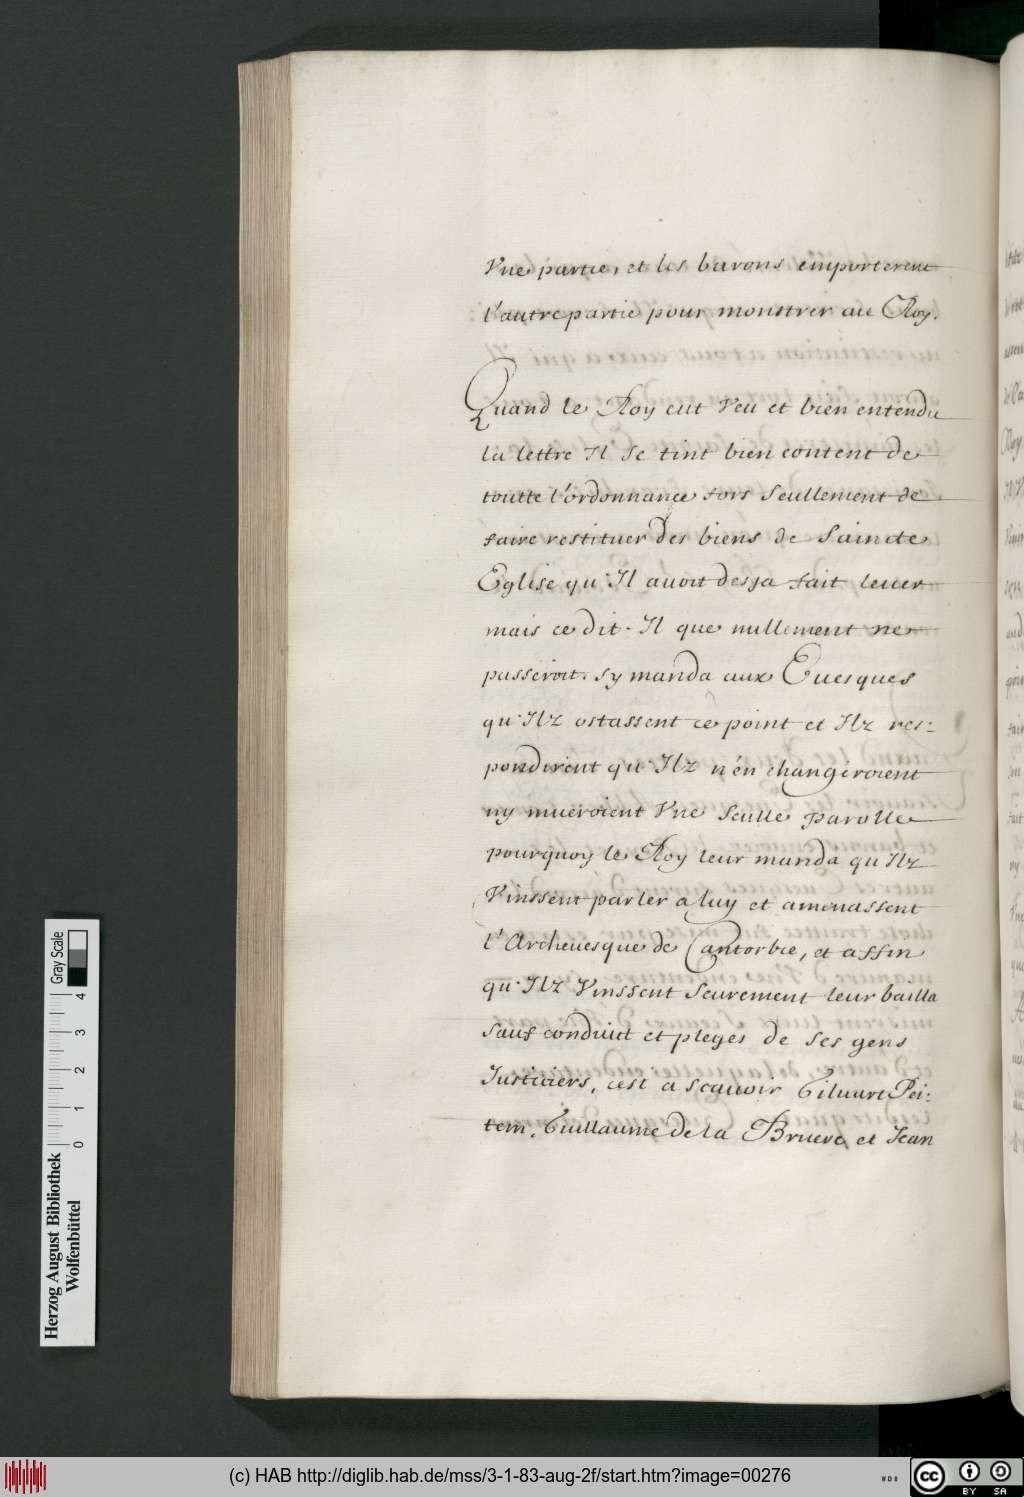 Vne partie, et les barons emporterent
l'autre partie pour monstrer au Roy.
Quand le Roy eut veu et bien entendu
la lettre Il se tint bien content de
toutte l'ordonnance fors seullement de
faire restituer des biens de Saincte
Eglise qu'Il auoit desja fait leuer
mais ce dit-Il que nullement ne
passeroit. sy manda aux Euesques
qu'Ilz ostassent ce point et Ilz res:
pondirent qu'Ilz n'en changeroient
ny mueroient Vne seulle parolle
pourquoy le Roy leur manda qu'Ilz
Vinssent parler a luy et amenassent
l'Archeuesque de Cantorbie, et affin
qu'Ilz Vinssent seurement leur bailla
sauf conduict et pleges de ses gens
Justiciers, cest a scauoir Giluart Pei:
tem, Guillaume de la Bruere, et Jean
Gray Scale
0 1 2 3 4
Herzog August Bibliothek
Wolfenbüttel
(c) HAB http://diglib.hab.de/mss/3-1-83-aug-2f/start.htm?image=00276
WDB
CC BY SA